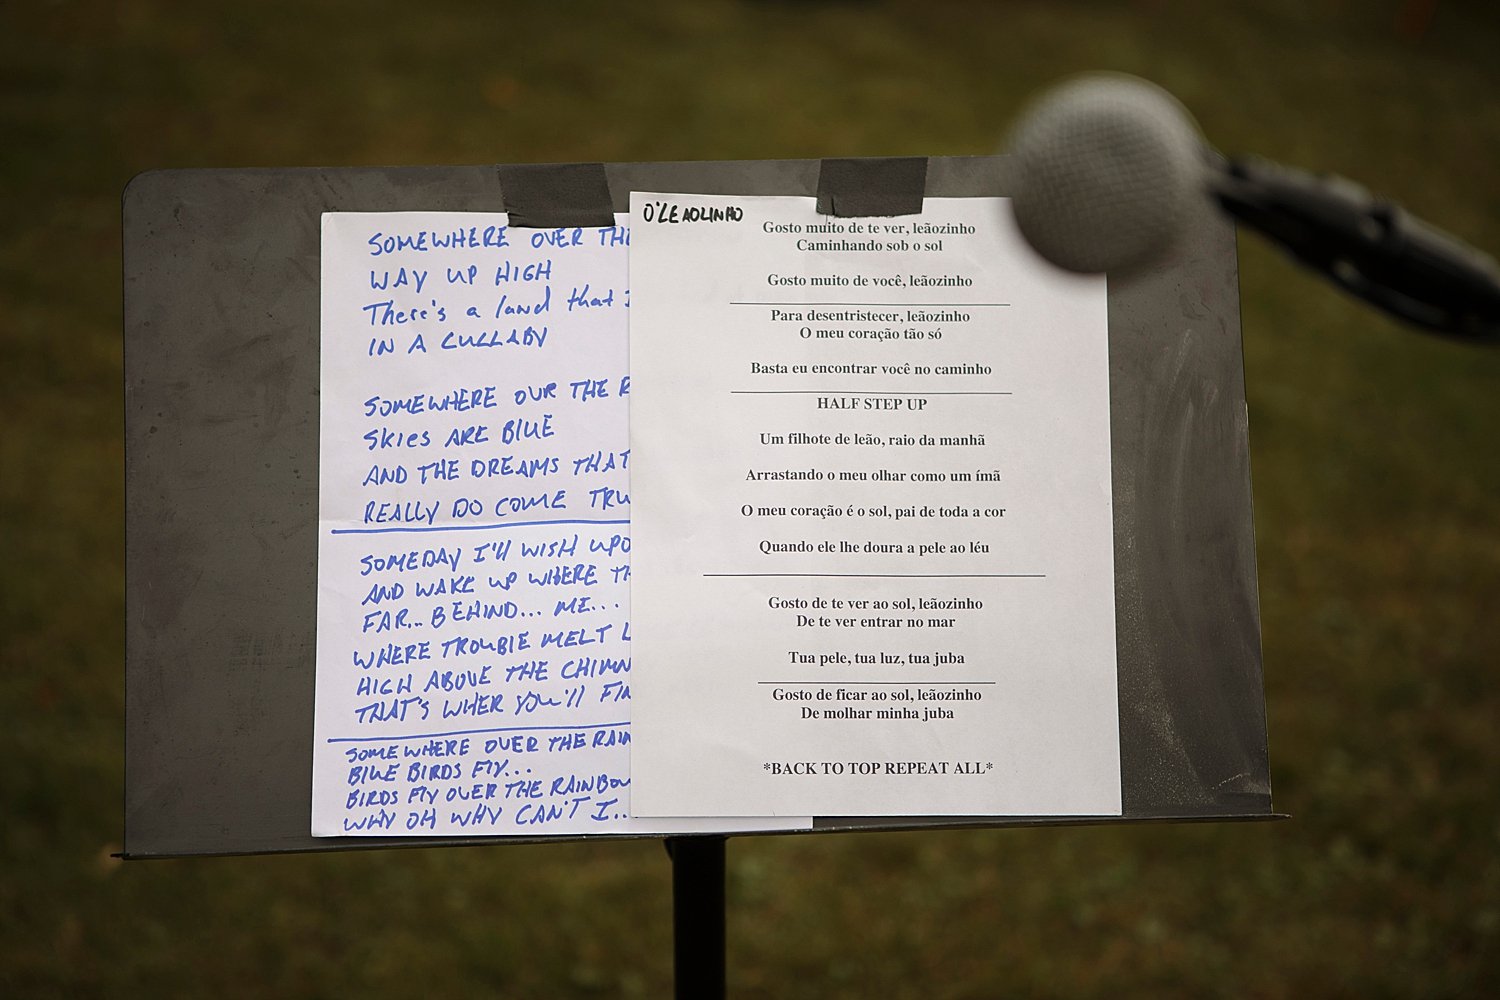 SOMEWHERE OVER THE
WAY UP HIGH
There's a land that I
IN A LULLABY
SOMEWHERE OUR THE R
SKIES ARE BLUE
AND THE DREAMS THAT
REALLY DO COME TRU
SOMEDAY I'll WISH UPO
AND WAKE UP WHERE TH
FAR... BEHIND... ME...
WHERE TROUBLE MELT L
HIGH ABOVE THE CHIMN
THAT'S WHER YOU'll FIN
SOMEWHERE OVER THE RAIN
BLUE BIRDS FLY...
BIRDS FLY OVER THE RAINBOW
WHY OH WHY CAN'T I...
O'LEAOLINHO
Gosto muito de te ver, leãozinho
Caminhando sob o sol
Gosto muito de você, leãozinho
Para desentristecer, leãozinho
O meu coração tão só
Basta eu encontrar você no caminho
HALF STEP UP
Um filhote de leão, raio da manhã
Arrastando o meu olhar como um ímã
O meu coração é o sol, pai de toda a cor
Quando ele lhe doura a pele ao léu
Gosto de te ver ao sol, leãozinho
De te ver entrar no mar
Tua pele, tua luz, tua juba
Gosto de ficar ao sol, leãozinho
De molhar minha juba
*BACK TO TOP REPEAT ALL*